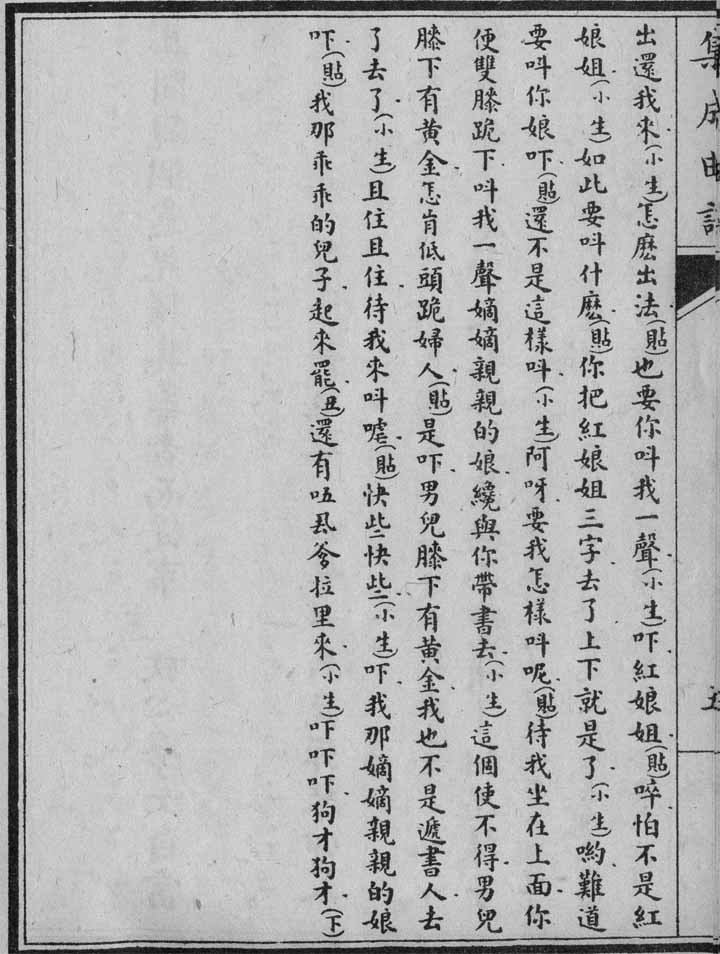 集成曲譜
五
出還我來(小生)怎麽出法(貼)也要你呌我一聲(小生)吓紅娘姐(貼)啐怕不是紅
娘姐(小生)如此要呌什麽(貼)你把紅娘姐三字去了上下就是了(小生)喲難道
要呌你娘吓(貼)還不是這樣呌(小生)阿呀要我怎樣呌呢(貼)待我坐在上面你
便雙膝跪下呌我一聲嫡嫡親親的娘纔與你帶書去(小生)這個使不得男兒
膝下有黃金怎肯低頭跪婦人(貼)是吓男兒膝下有黃金我也不是遞書人去
了去了(小生)且住且住待我來呌嘘(貼)快些快些(小生)吓我那嫡嫡親親的娘
吓(貼)我那乖乖的兒子起來罷(丑)還有唔厾爹拉里來(小生)吓吓吓狗才狗才(下)